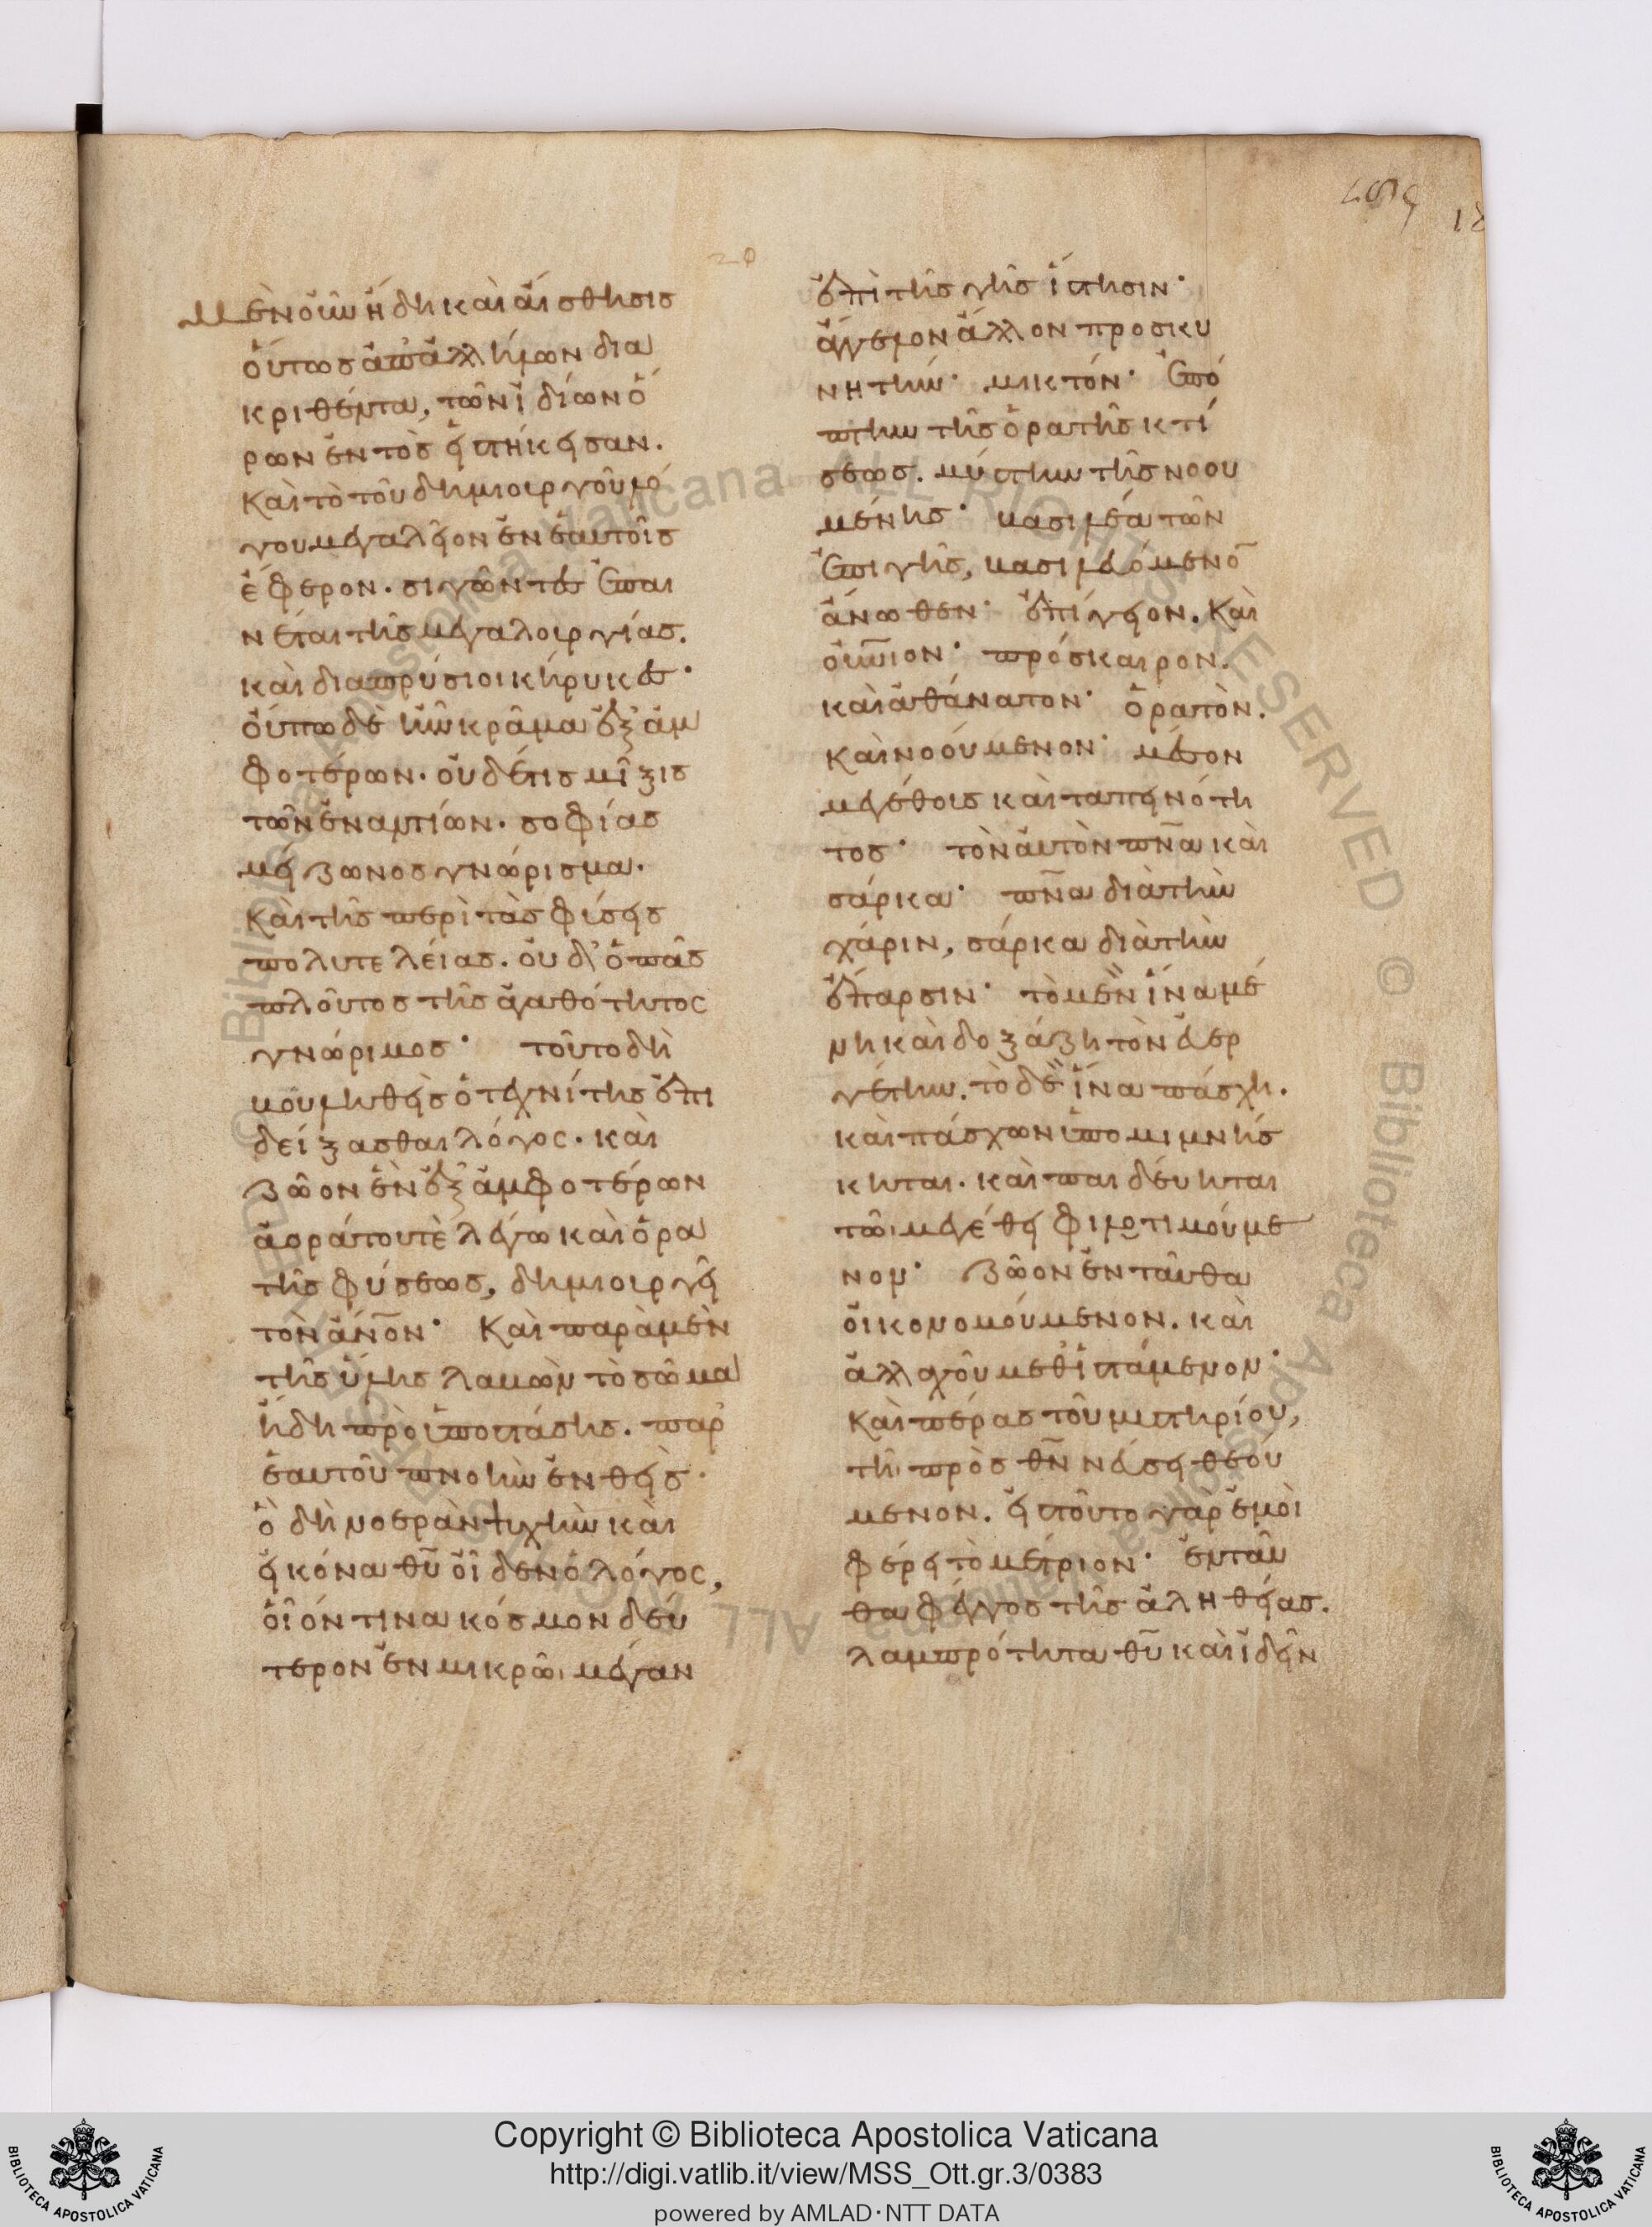 20
μὲν οὖν ἤδη καὶ αἴσθησις
οὕτως ἀπ' ἀλλήλων δια
κριθέντα, τῶν ἰδίων ὅ
ρων ἐντὸς εἱστήκεισαν.
καὶ τὸ τοῦ δημιουργοῦ λό
γου μεγαλεῖον ἐν ἑαυτοῖς
ἔφερον. σιγῶντες ἐπαι
νέται τῆς μεγαλουργίας.
καὶ διαπρύσιοι κήρυκες·
οὔπω δὲ ἦν κρᾶμα ἐξ ἀμ
φοτέρων. οὐδέ τις μῖξις
τῶν ἐναντίων. σοφίας
μείζωνος γνώρισμα.
καὶ τῆς περὶ τὰς φύσεις
πολυτελείας. οὐδ' ὁ πᾶς
πλοῦτος τῆς ἀγαθότητος
γνώριμος· τοῦτο δὴ
βουληθεὶς ὁ τεχνίτης ἐπι
δείξασθαι λόγος. καὶ
ζῶον ἓν ἐξ ἀμφοτέρων
ἀοράτου τὲ λέγω καὶ ὁρα
τῆς φύσεως, δημιουργεῖ
τὸν ἄνον· καὶ παρὰ μὲν
τῆς ὕλης λαβὼν τὸ σῶμα
ἤδη πρὸ ὑποστάσης. παρ'
ἑαυτοῦ πνοὴν ἐνθεὶς·
ὃ δὴ νοερὰν ψυχὴν καὶ
εἰκόνα θυ οἶδεν ὁ λόγος,
οἷόν τινα κόσμον δεύ
τερον ἐν μικρῶι μέγαν
ἐπὶ τῆς γῆς ἵστησιν·
ἄγγελον ἄλλον προσκυ
νητὴν· μικτόν· ἐπό
πτην τῆς ὁρατῆς κτί
σεως. μύστην τῆς νοου
μένης· βασιλέα τῶν
ἐπι γῆς, βασιλευόμενο
ἄνωθεν· ἐπίγειον. καὶ
οὐνιον· πρόσκαιρον.
καὶ ἀθάνατον· ὁρατὸν.
καὶ νοούμενον· μέσον
μεγέθους καὶ ταπεινότη
τος· τὸν αὐτὸν πνα καὶ
σάρκα· πνα διὰ τὴν
χάριν, σάρκα διὰ τὴν
ἔπαρσιν· τὸ μὲν ἵνα μέ
νη καὶ δοξάζη τὸν εὐερ
γέτην. τὸ δὲ ἵνα πάσχη.
καὶ πάσχων ὑπομιμνήσ
κηται. καὶ παιδεύηται
τῶι μεγέθει φιλοτιμούμε
νον· ζῶον ἐνταῦθα
οἰκονομούμενον. καὶ
ἀλλαχοῦ μεθιστάμενον·
καὶ πέρας τοῦ μυστηρίου,
τῆι πρὸς θν νεύσει θεού
μενον. εἰς τοῦτο γὰρ ἐμοὶ
φέρει τὸ μέτριον· ἐνταῦ
θα φέγγος τῆς ἀληθείας.
λαμπρότητα θυ καὶ ἰδεῖν
Copyright © Biblioteca Apostolica Vaticana
http://digi.vatlib.it/view/MSS_Ott.gr.3/0383
powered by AMLAD·NTT DATA
BIBLIOTECA APOSTOLICA VATICANA
BIBLIOTECA APOSTOLICA VATICANA